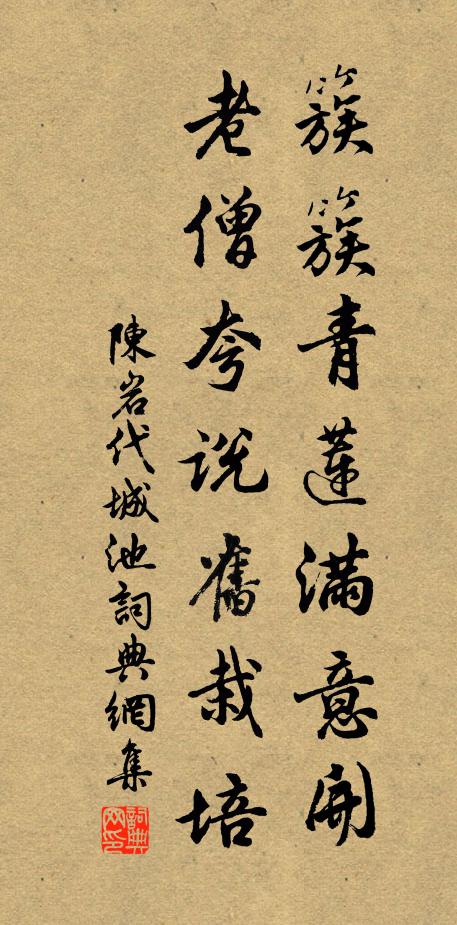 簇簇青蓮滿意開
老僧夸說舊栽培
陳岩代城池詞典網集
詞典网印